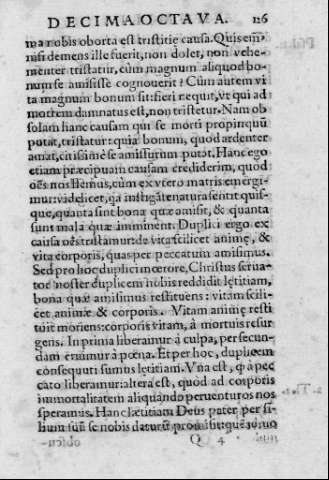 DECIMAOCTAVA. 126
ma nobis oborta est tristitiæ causa. Quis em̃
nisi demens ille fuerit, non dolet, non vehe-
menter tristatur, cùm magnum aliquod bo-
num se amisisse cognouerit? Cùm autem vi
ta magnum bonum sit: fieri nequit, vt qui ad
mortem damnatus est, non tristetur. Nam ob
solam hanc causam qui se morti propinquũ
putat, tristatur: quia bonum, quod ardenter
amat, citissimè se amissurum putat. Hanc ego
etiam præcipuam causam crediderim, quod
oẽs nos flemus, cùm ex vtero matris emergi-
mur: videlicet, q̃a instigãte natura sentit quis-
que, quanta sint bona quæ amisit, & quanta
sunt mala quæ imminent. Duplici ergo ex
causa oẽs tristamur: de vita scilicet animę, &
vita corporis, quas per peccatum amisimus.
Sed pro hoc duplici mœrore, Christus serua-
tor noster duplicem nobis reddidit lętitiam,
bona quæ amisimus restituens: vitam scili-
cet animæ & corporis. Vitam animę resti
tuit moriens: corporis vitam, à mortuis resur
gens. In prima liberamur à culpa, per secun-
dam eruimur à pœna. Et per hoc, duplicem
consequuti sumus lętitiam. Vna est, q̃ à pec
cato liberamur: altera est, quod ad corporis
immortalitatem aliquando peruenturos nos
speramus. Hanc lætitiam Deus pater per fi-
lium suũ se nobis daturũ promisit:
Q 4